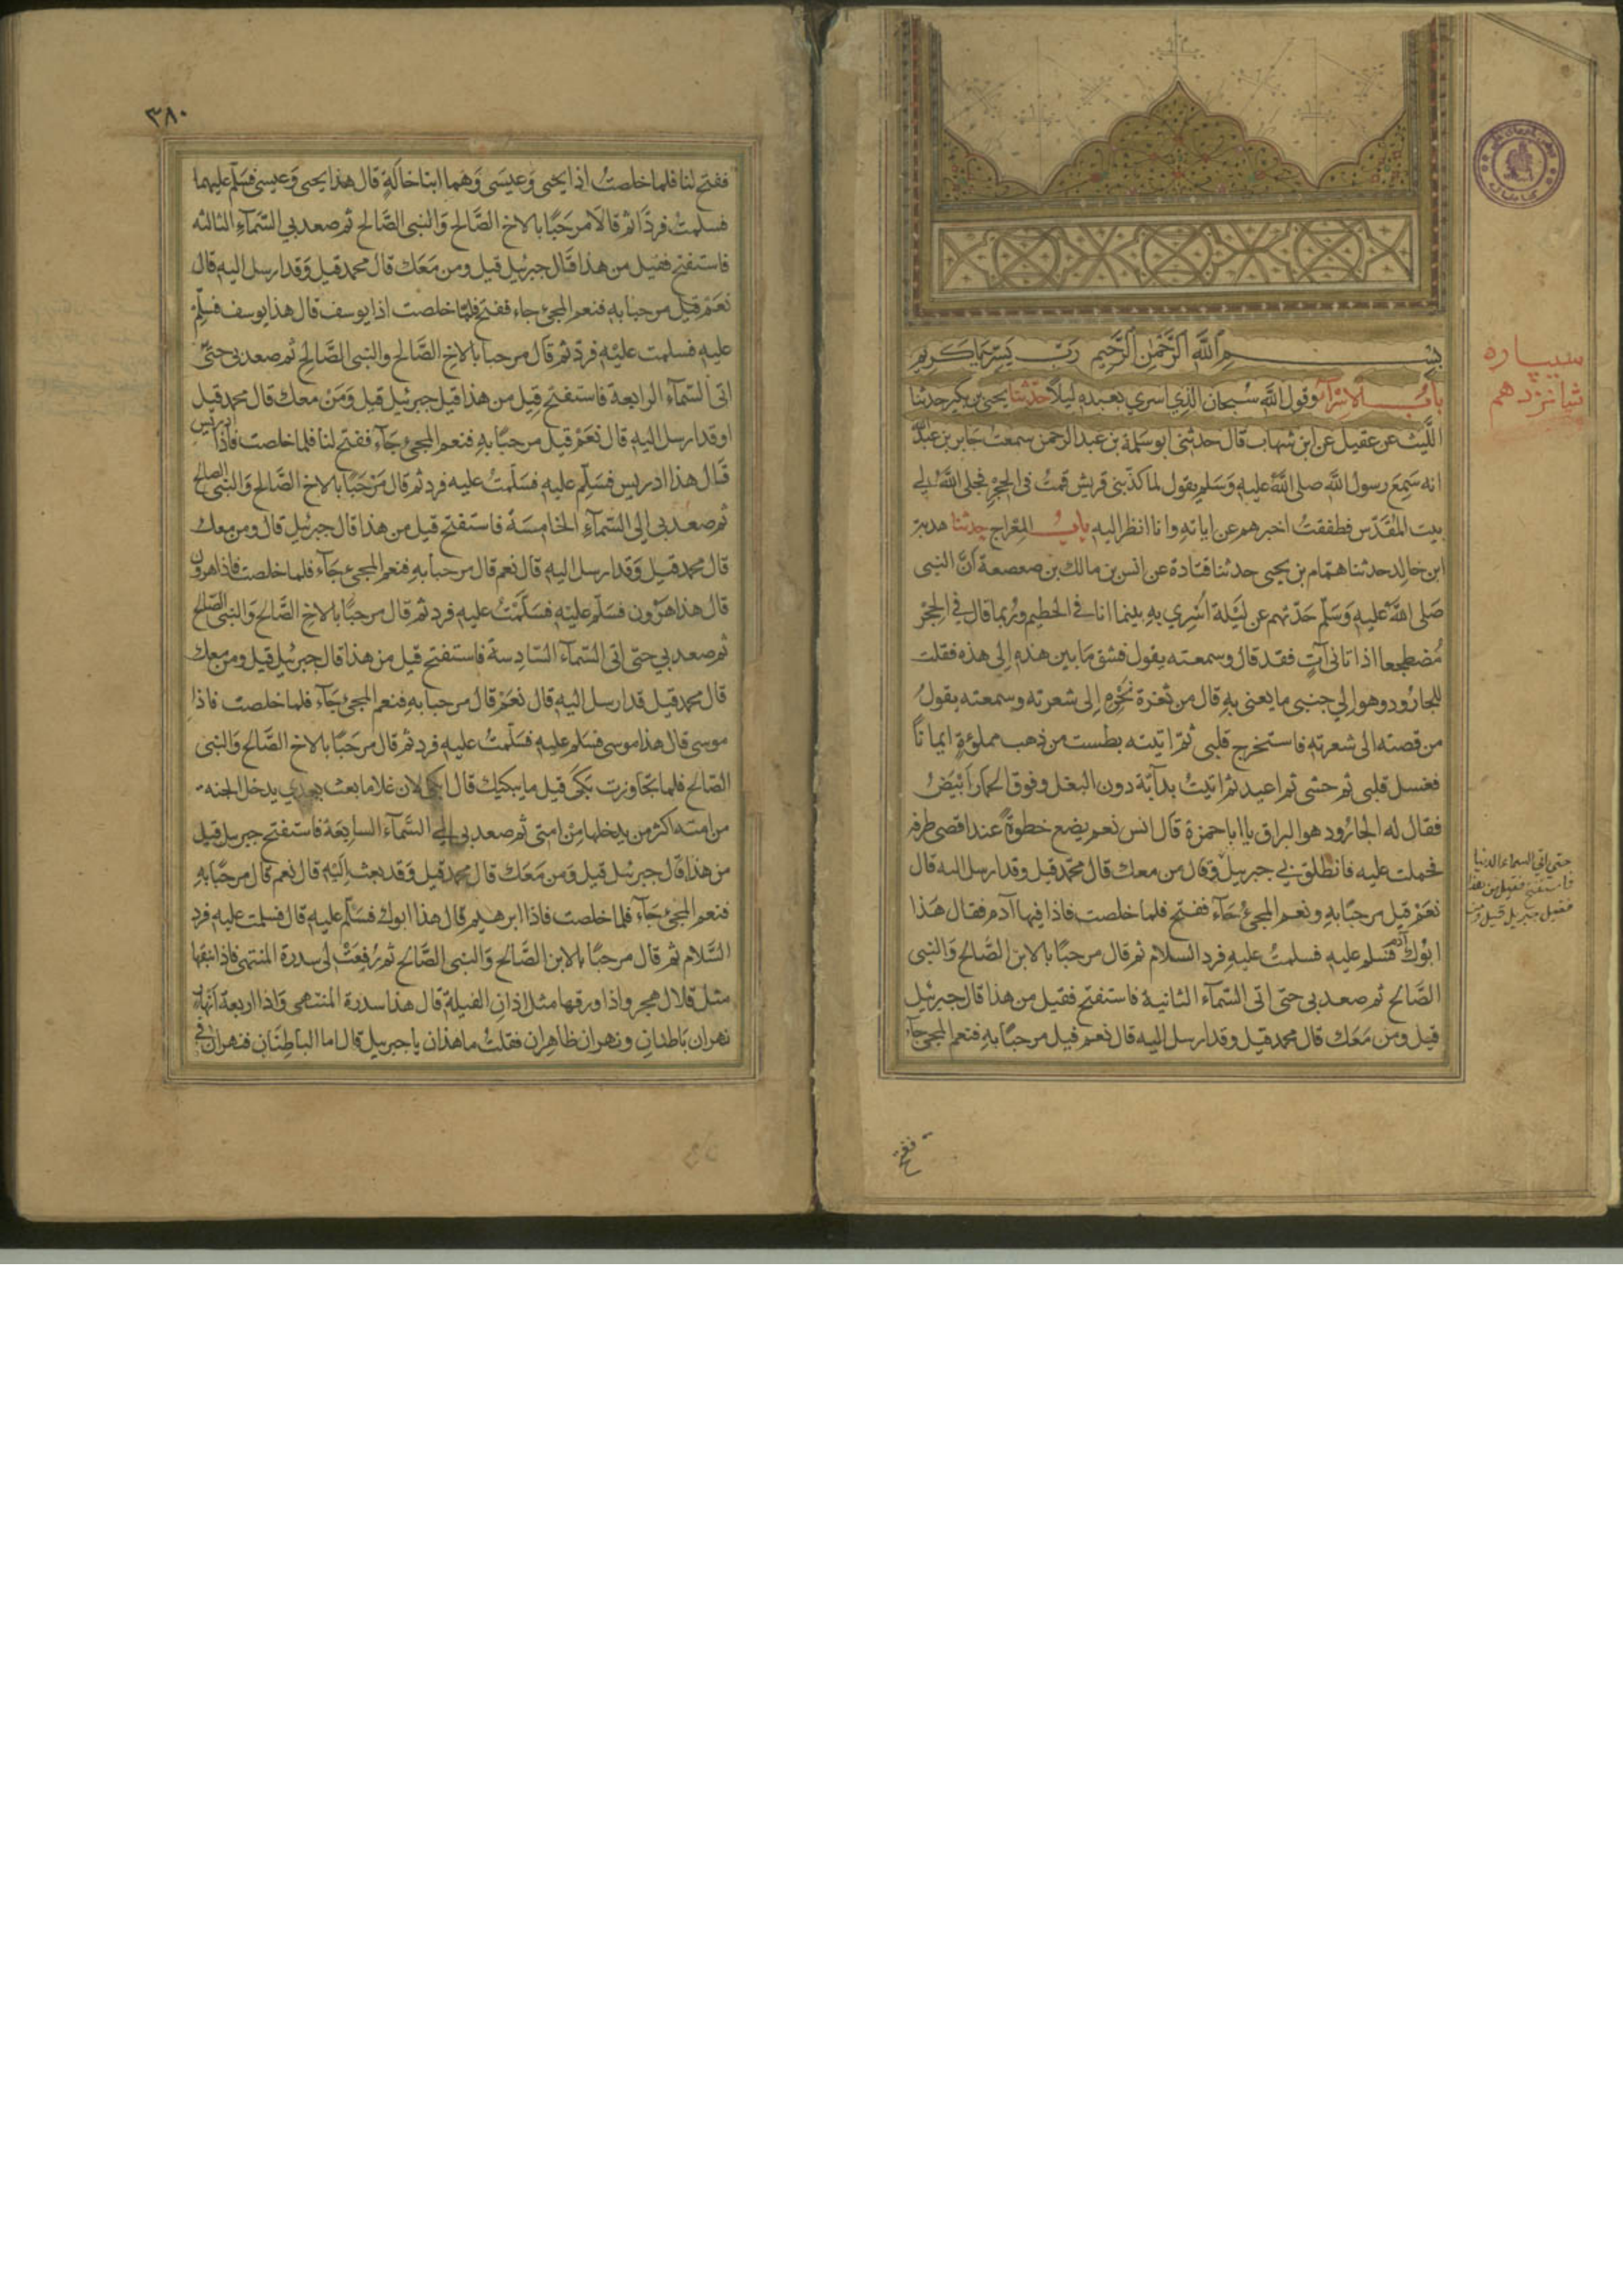 بسم الله الرحمن الرحيم رب يسر يا كريم
باب الاسرآء وقول الله سبحان الذي اسري بعبده ليلا حدثنا يحيى بن بكير حدثنا
الليث عن عقيل عن ابن شهاب قال حدثني ابو سلمة بن عبد الرحمن سمعت جابر بن عبد الله
انه سمع رسول الله صلى الله عليه وسلم يقول لما كذبني قريش قمت في الحجر فجلى الله لي
بيت المقدس فطفقت اخبرهم عن اياته وانا انظر اليه باب المعراج حدثنا هدبة
ابن خالد حدثنا همام بن يحيى حدثنا قتادة عن انس بن مالك بن صعصعة ان النبي
صلى الله عليه وسلم حدثهم عن ليلة اسري به بينما انا في الحطيم وربما قال في الحجر
مضطجعا اذ اتاني آت فقد قال وسمعته يقول فشق ما بين هذه الى هذه فقلت
للجارود وهو الي جنبي ما يعني به قال من ثغرة نحره الى شعرته وسمعته يقول
من قصته الى شعرته فاستخرج قلبي ثم اتيته بطست من ذهب مملوءة ايمانا
فغسل قلبي ثم حشي ثم اعيد ثم اتيت بدآبة دون البغل وفوق الحمار ابيض
فقال له الجارود هو البراق يا ابا حمزة قال انس نعم يضع خطوه عند اقصى طرفه
فحملت عليه فانطلق بي جبريل وقال من معك قال محمد قيل وقد ارسل اليه قال
نعم قيل مرحبا به ونعم المجئ جآء ففتح فلما خلصت فاذا فيها آدم فقال هذا
ابوك آدم فسلم عليه فسلمت عليه فرد السلام ثم قال مرحبا بالابن الصالح والنبي
الصالح ثم صعد بي حتى اتى السمآء الثانية فاستفتح فقيل من هذا قال جبرئيل
قيل ومن معك قال محمد قيل وقد ارسل اليه قال نعم قيل مرحبا به فنعم المجئ جآء
ففتح
سيپاره
شانزدهم
حتى اتى السماء الدنيا
فاستفتح فقيل من هذا
فقيل جبريل قيل ومن
٣٨٠
ففتح لنا فلما خلصت اذا يحيى وعيسى وهما ابنا خالة قال هذا يحيى وعيسى فسلم عليهما
فسلمت فردا ثم قالا مرحبا بالاخ الصالح والنبي الصالح ثم صعد بي السمآء الثالثه
فاستفتح فقيل من هذا قال جبرئيل قيل ومن معك قال محمد قيل وقد ارسل اليه قال
نعم قيل مرحبا به فنعم المجئ جاء ففتح فلما خلصت اذا يوسف قال هذا يوسف فسلم
عليه فسلمت عليه فرد ثم قال مرحبا بالاخ الصالح والنبي الصالح ثم صعد بي حتى
اتى السمآء الرابعة فاستفتح قيل من هذا قيل جبرئيل قيل ومن معك قال محمد قيل
اوقد ارسل اليه قال نعم قيل مرحبا به فنعم المجئ جآء ففتح لنا فلما خلصت فاذا ادريس
قال هذا ادريس فسلم عليه فسلمت عليه فرد ثم قال مرحبا بالاخ الصالح والنبي الصالح
ثم صعد بي الى السمآء الخامسة فاستفتح قيل من هذا قال جبرئيل قال ومن معك
قال محمد قيل وقد ارسل اليه قال نعم قال مرحبا به فنعم المجئ جآء فلما خلصت فاذا هرون
قال هذا هرون فسلم عليه فسلمت عليه فرد ثم قال مرحبا بالاخ الصالح والنبي الصالح
ثم صعد بي حتى اتى السمآء السادسة فاستفتح قيل من هذا قال جبرئيل قيل ومن معك
قال محمد قيل قد ارسل اليه قال نعم قال مرحبا به فنعم المجئ جآء فلما خلصت فاذا
موسى قال هذا موسى فسلم عليه فسلمت عليه فرد ثم قال مرحبا بالاخ الصالح والنبي
الصالح فلما تجاوزت بكى قيل ما يبكيك قال ابكي لان غلاما بعث بعدي يدخل الجنه
من امته اكثر من يدخلها من امتي ثم صعد بي الي السمآء السابعة فاستفتح جبريل قيل
من هذا قال جبرئيل قيل ومن معك قال محمد قيل وقد بعث اليه قال نعم قال مرحبا به
فنعم المجئ جآء فلما خلصت فاذا ابرهيم قال هذا ابوك فسلم عليه قال فسلمت عليه فرد
السلام ثم قال مرحبا بالابن الصالح والنبي الصالح ثم رفعت لي سدرة المنتهى فاذا نبقها
مثل قلال هجر واذا ورقها مثل اذان الفيلة قال هذا سدرة المنتهى واذا اربعة انهار
نهران باطنان ونهران ظاهران فقلت ما هذان يا جبرييل قال اما الباطنان فنهران في